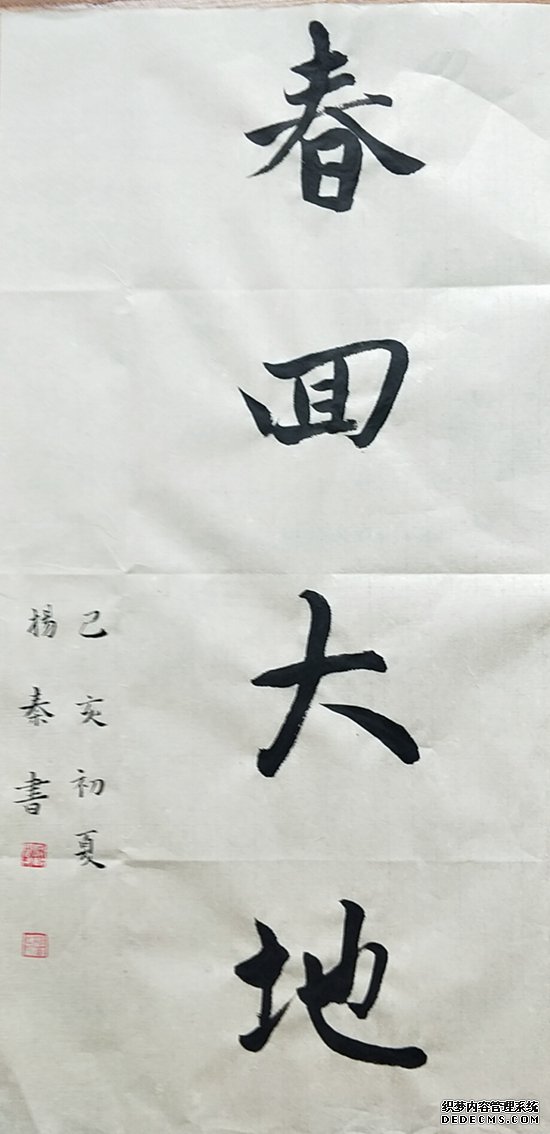 春回大地
己亥初夏
杨秦书
织梦内容管理系统
DEDECMS.COM